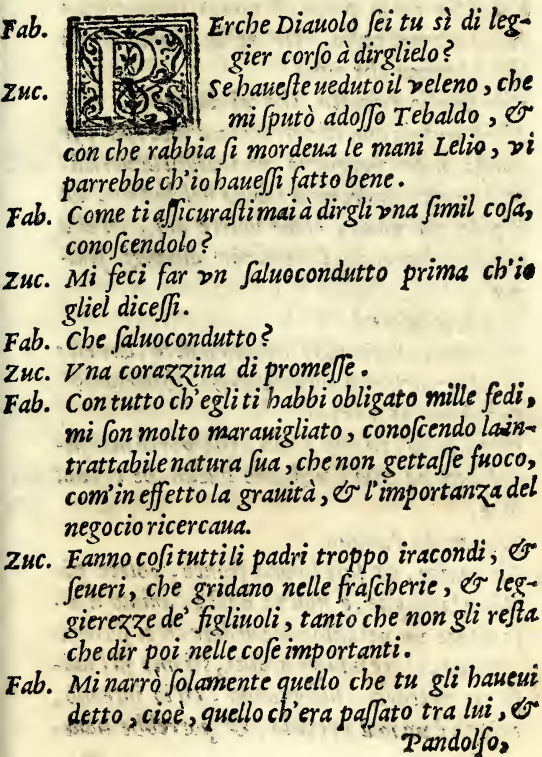 Fab. PErche Diauolo ſei tu sì di leg-
gier corſo à dirglielo?
Zuc. Se haueſte ueduto il veleno, che
mi ſputò adoſſo Tebaldo, &
con che rabbia ſi mordeua le mani Lelio, vi
parrebbe ch'io haueſſi fatto bene.
Fab. Come ti aſſicuraſti mai à dirgli vna ſimil coſa,
conoſcendolo?
Zuc. Mi feci far vn ſaluocondutto prima ch'io
gliel diceſſi.
Fab. Che ſaluocondutto?
Zuc. Vna corazzina di promeſſe.
Fab. Con tutto ch'egli ti habbi obligato mille fedi,
mi ſon molto marauigliato, conoſcendo la in-
trattabile natura ſua, che non gettaſſe fuoco,
com'in effetto la grauità, & l'importanza del
negocio ricercaua.
Zuc. Fanno coſi tutti li padri troppo iracondi, &
ſeueri, che gridano nelle fraſcherie, & leg-
gierezze de' figliuoli, tanto che non gli reſta
che dir poi nelle coſe importanti.
Fab. Mi narrò ſolamente quello che tu gli haueui
detto, cioè, quello ch'era paſſato tra lui, &
Pandolfo,